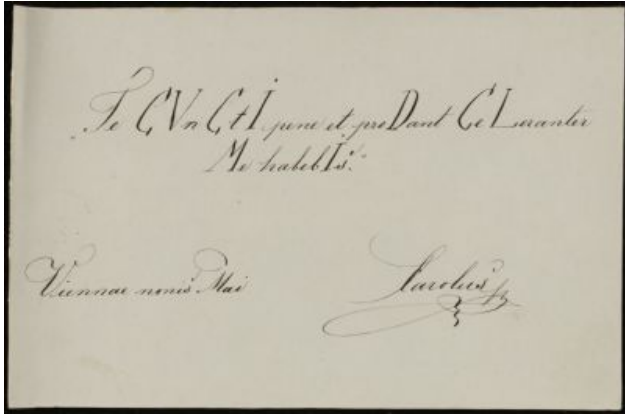 Te CVnCtI pene et proDant CeLeranter
Me habebIs.
Viennae nonis Mai Carolus